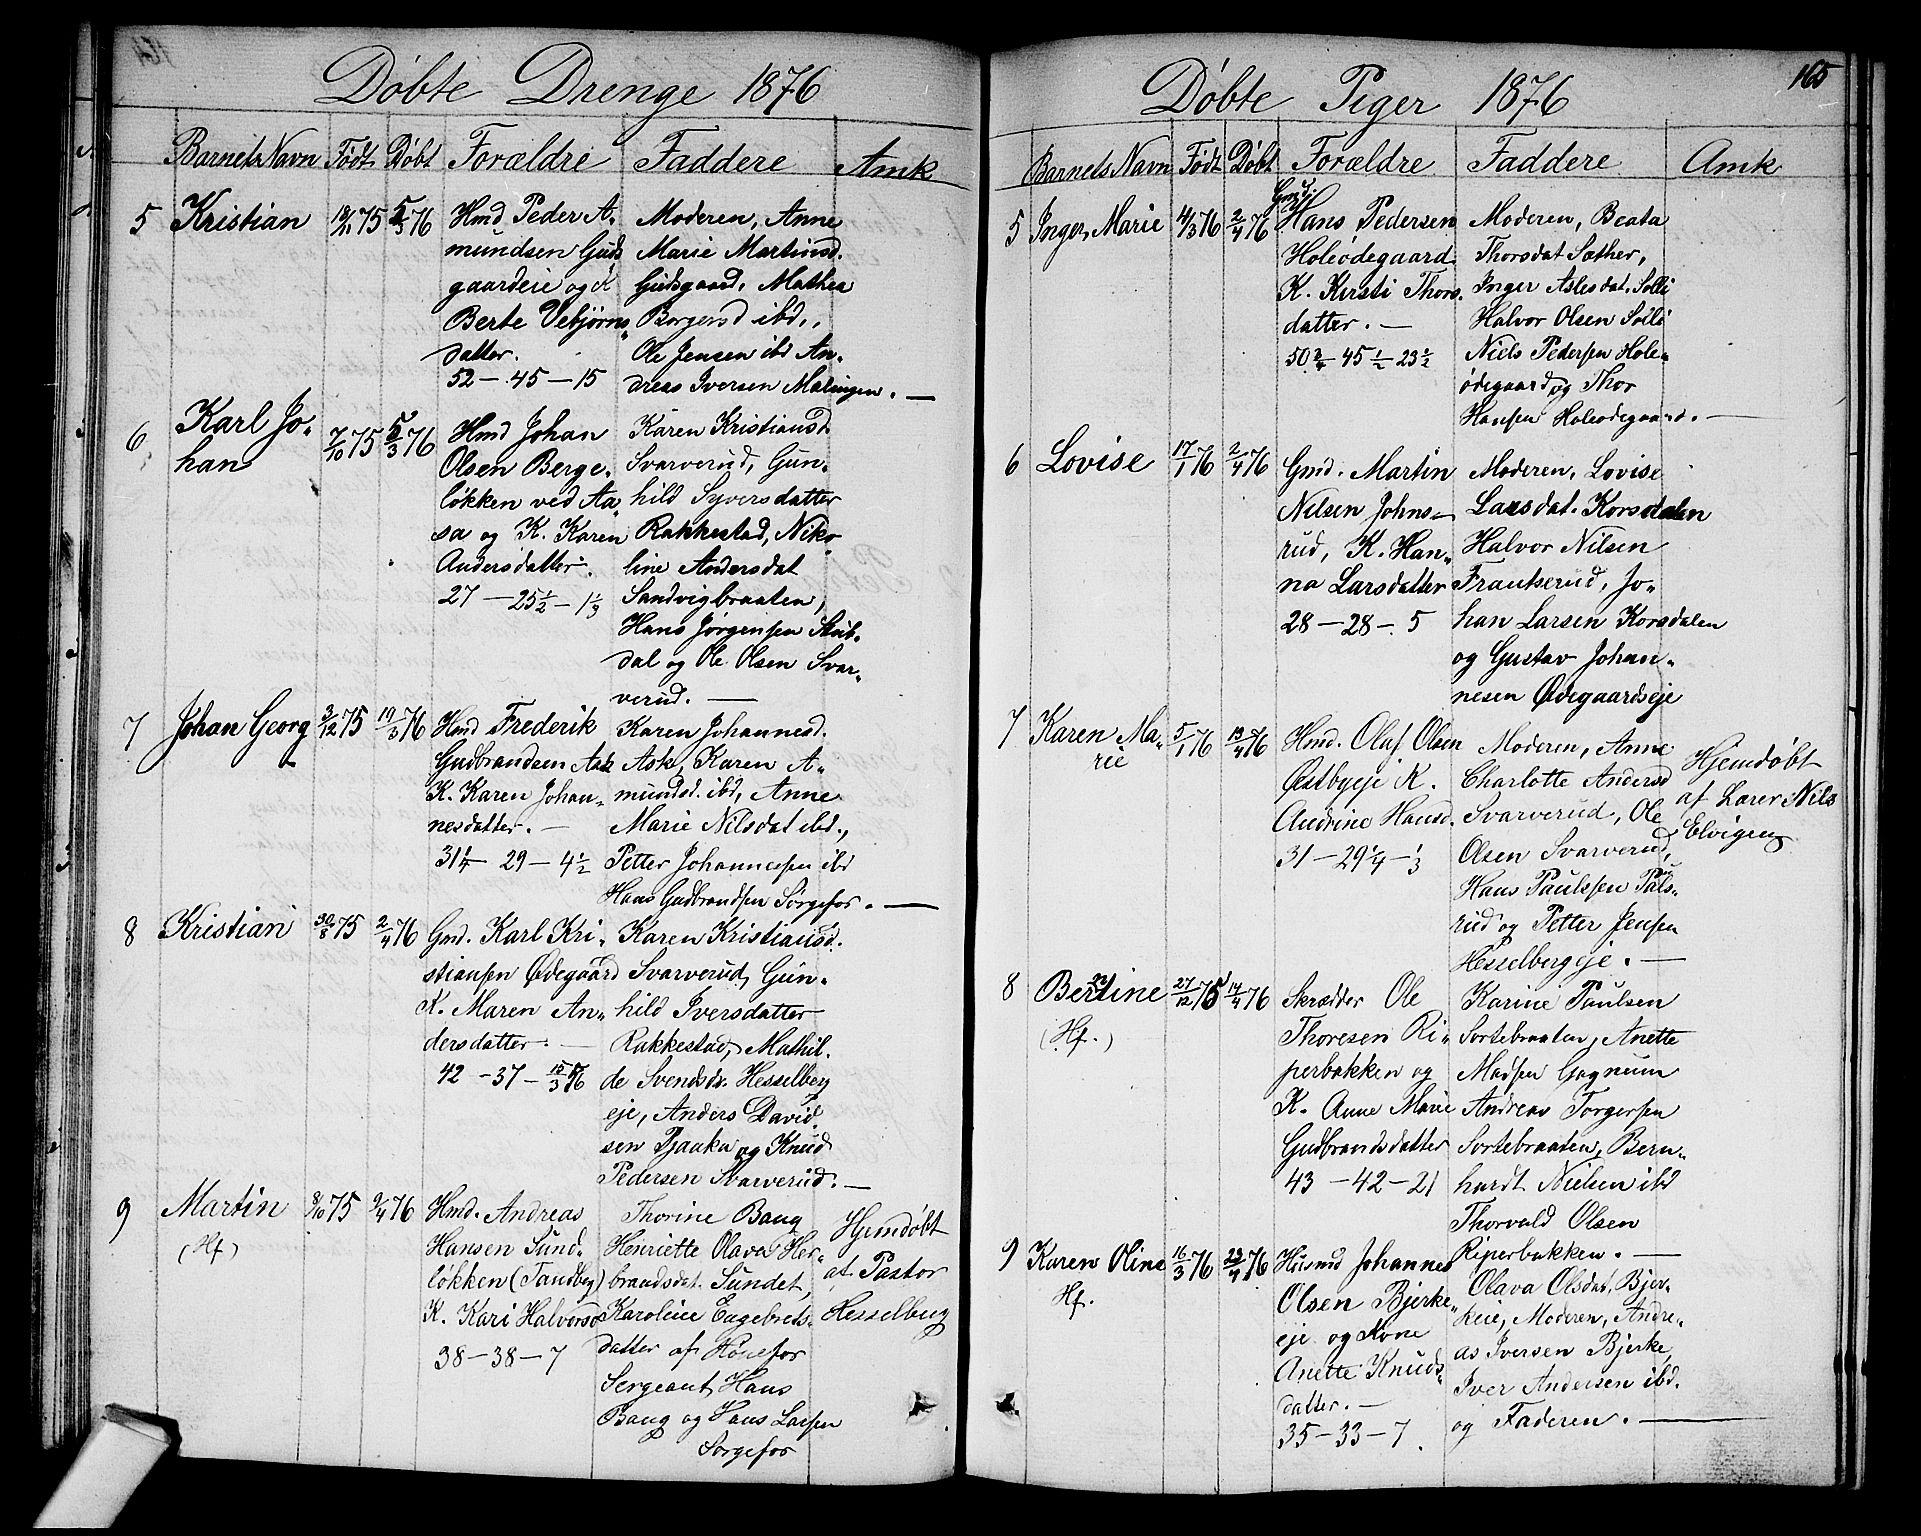 Døbte Drenge 1876
Barnets Navn Født Døbt Forældre Faddere Amk
5 Kristian 18/11 75 5/3 76
Hmd Peder A.
mundsen Guds
gaardeie og K
Berte Vebjørns
datter.
52 - 45 - 15
Moderen, Anne
Marie Martinsd.
Gudsgaard, Mathea
Borgersd ibd.,
Ole Jensen ibd An-
dreas Iversen Malingen. —
6 Karl Jo-
han 7/10 75 5/3 76
Hmd Johan
Olsen Berge-
løkken ved Aa-
sa og K. Karen
Andersdatter.
27 - 25 1/2 - 1 1/3
Karen Kristiansd.
Svarverud, Gun-
hild Syversdatter
Rakkestad, Niko-
line Andersdat
Sandvigbraaten,
Hans Jørgensen
dal og Ole Olsen Svar-
verud. —
7 Johan Georg 3/12 75 19/3 76
Hmd Frederik
Gudbrandsen Ask
K. Karen Johan-
nesdatter. —
31 1/4 - 29 - 4 1/2
Karen Johannesd.
Ask, Karen A-
mundsd. ibd, Anne
Marie Nilsdat ibd.,
Petter Johannesen ibd
Hans Gudbrandsen Sørgefos. —
8 Kristian 30/8 75 2/4 76
Gmd. Karl Kri-
stiansen Ødegaard
K. Maren An-
dersdatter. —
42 - 37 - 15/3 76
Karen Kristiansd.
Svarverud, Gun-
hild Iversdatter
Rakkestad, Mathil-
de Svendsdr. Hesselberg
eje, Anders David-
sen Pjaaka og Knud
Pedersen Svarverud. —
9 Martin 8/10 75 9/4 76
(Hf)
Hmd. Andreas
Hansen Sund-
løkken (Tandberg)
K. Kari Halvorsd
38 - 38 - 7
Thorine Baug
Henriette Olava Her-
brandsdat. Sundet,
Karoline Engebrets-
datter af Hønefos
Sergeant Hans
Baug og Hans Larsen
Sørgefos
Hjemdøbt
af Pastor
Hesselberg
165
Døbte Piger 1876
Barnets Navn Født Døbt Forældre Faddere Amk
5 Inger Marie 4/3 76 2/4 76
Gmd.
Hans Pedersen
Holeødegaard
K. Kirsti Thors-
datter. —
50 3/4 - 45 1/2 - 23 1/2
Moderen, Beata
Thorsdat Sæther,
Inger Aslesdat. Solli
Halvor Olsen Solli
Niels Pedersen Hole-
ødegaard og Thor
Hansen Holeødegaard. —
6 Lovise 17/1 76 2/4 76
Gmd. Martin
Nilsen Johns-
rud, K. Han-
na Larsdatter
28 - 28 - 5
Moderen, Lovise
Larsdat. Korsdalen
Halvor Nilsen
Frantserud, Jo-
han Larsen Korsdalen
og Gustav Johan-
nesen Ødegaardseje
7 Karen Ma-
rie 5/1 76 13/4 76
Hmd. Olaf Olsen
Østbyeje K.
Andrine Hansd.
31 - 29 1/4 - 1/3
Moderen, Anne
Charlotte Andersd
Svarverud, Ole
Olsen Svarverud,
Hans Paulsen Pæls-
rud og Petter Jensen
Hesselbergeje. —
Hjemdøbt
af Lærer Nils
Elvigen
8 Bertine 27/12 75 14/4 76
(Hf.)
Skrædder Ole
Thoresen Ri-
perbakken og
K. Anne Marie
Gudbrandsdatter
43 - 42 - 21
Karine Paulsen
Sortebraaten, Anette
Madsen Gagnum
Andreas Torgersen
Sortebraaten, Bern-
hardt Nielsen ibd
Thorvald Olsen
Riperbakken. —
9 Karen Oline 16/3 76 23/4 76
Hf.
Husmd Johannes
Olsen Bjerke-
eje og Kone
Anette Knuds-
datter. —
35 - 33 - 7
Olava Olsdat, Bjer-
keie, Moderen, Andre-
as Iversen Bjerke,
Iver Andersen ibd.
og Faderen. —